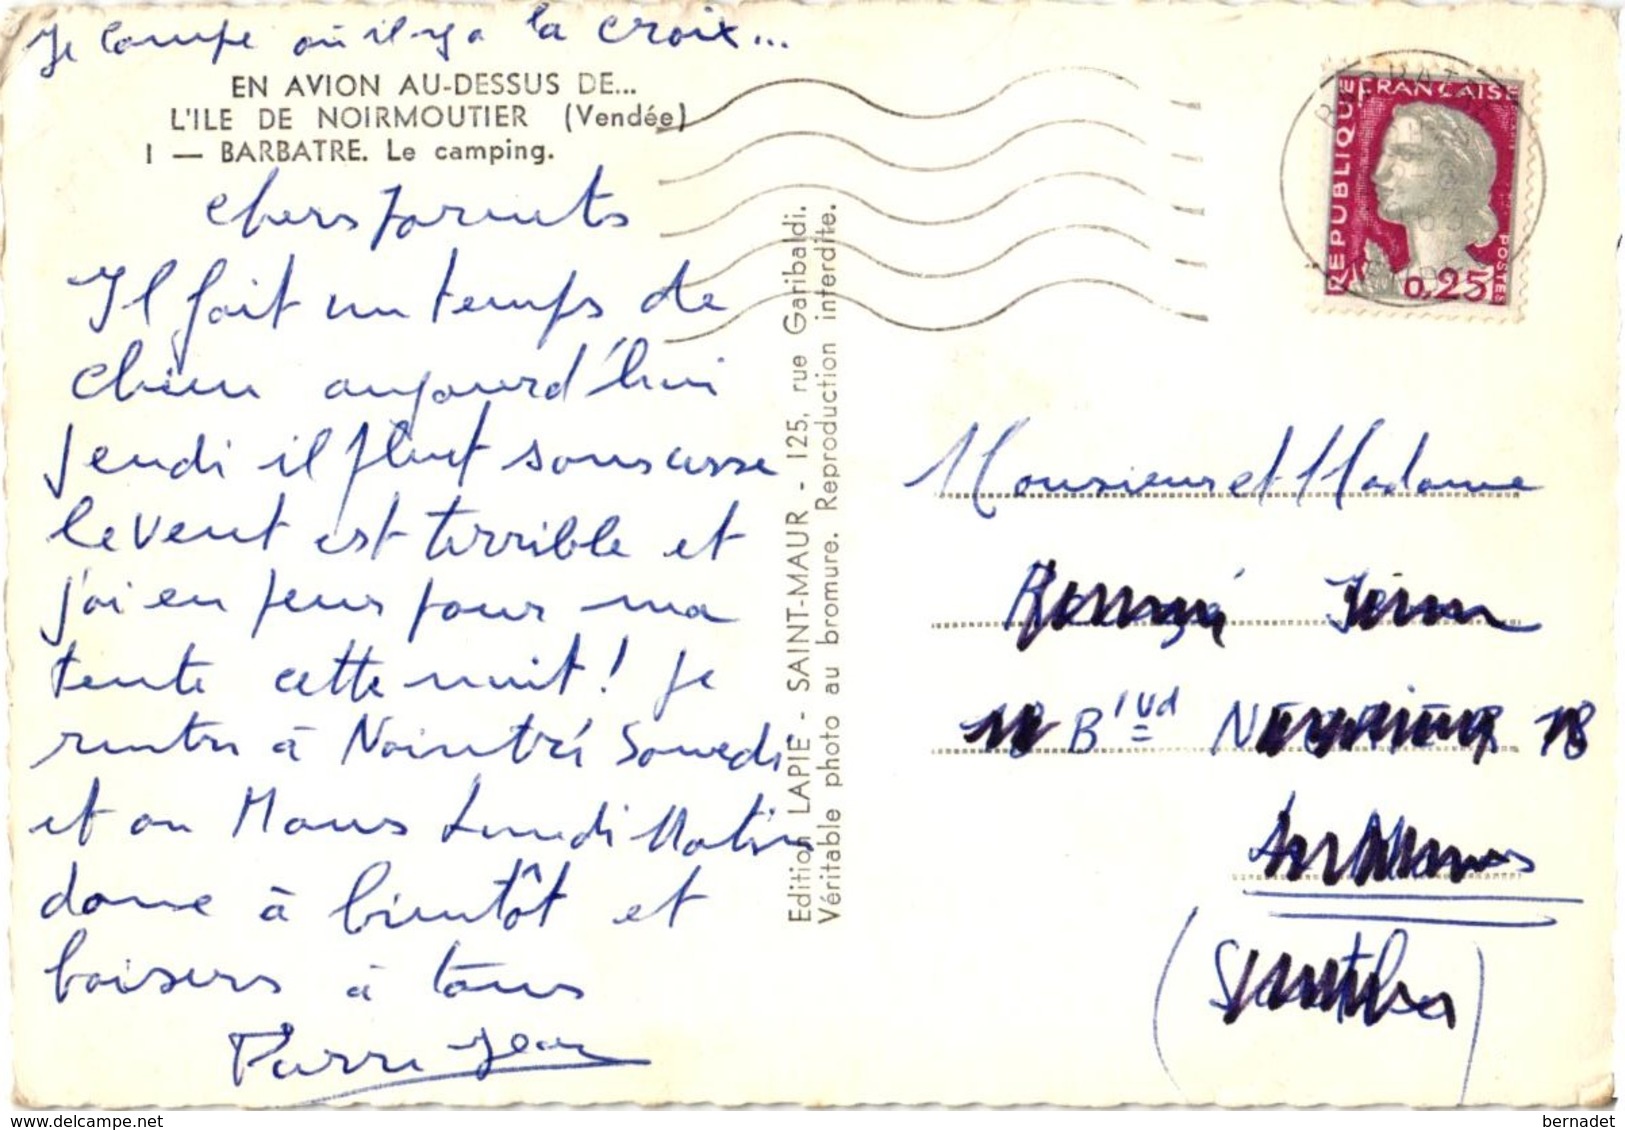 Je campe où il y a la croix...
EN AVION AU-DESSUS DE...
L'ILE DE NOIRMOUTIER (Vendée)
1 — BARBATRE. Le camping.
Chers parents
Il fait un temps de
chien aujourd'hui
jeudi il pleut sans cesse
le vent est terrible et
j'ai eu peur pour ma
tente cette nuit ! je
rentre à Naintré Samedi
et au Mans Lundi Matin
donc à bientôt et
baisers à tous
Pierre Jean
Edition LAPIE - SAINT-MAUR - 125, rue Garibaldi.
Véritable photo au bromure. Reproduction interdite.
REPUBLIQUE FRANÇAISE
POSTES
0,25
Monsieur et Madame
Bd
bernadet